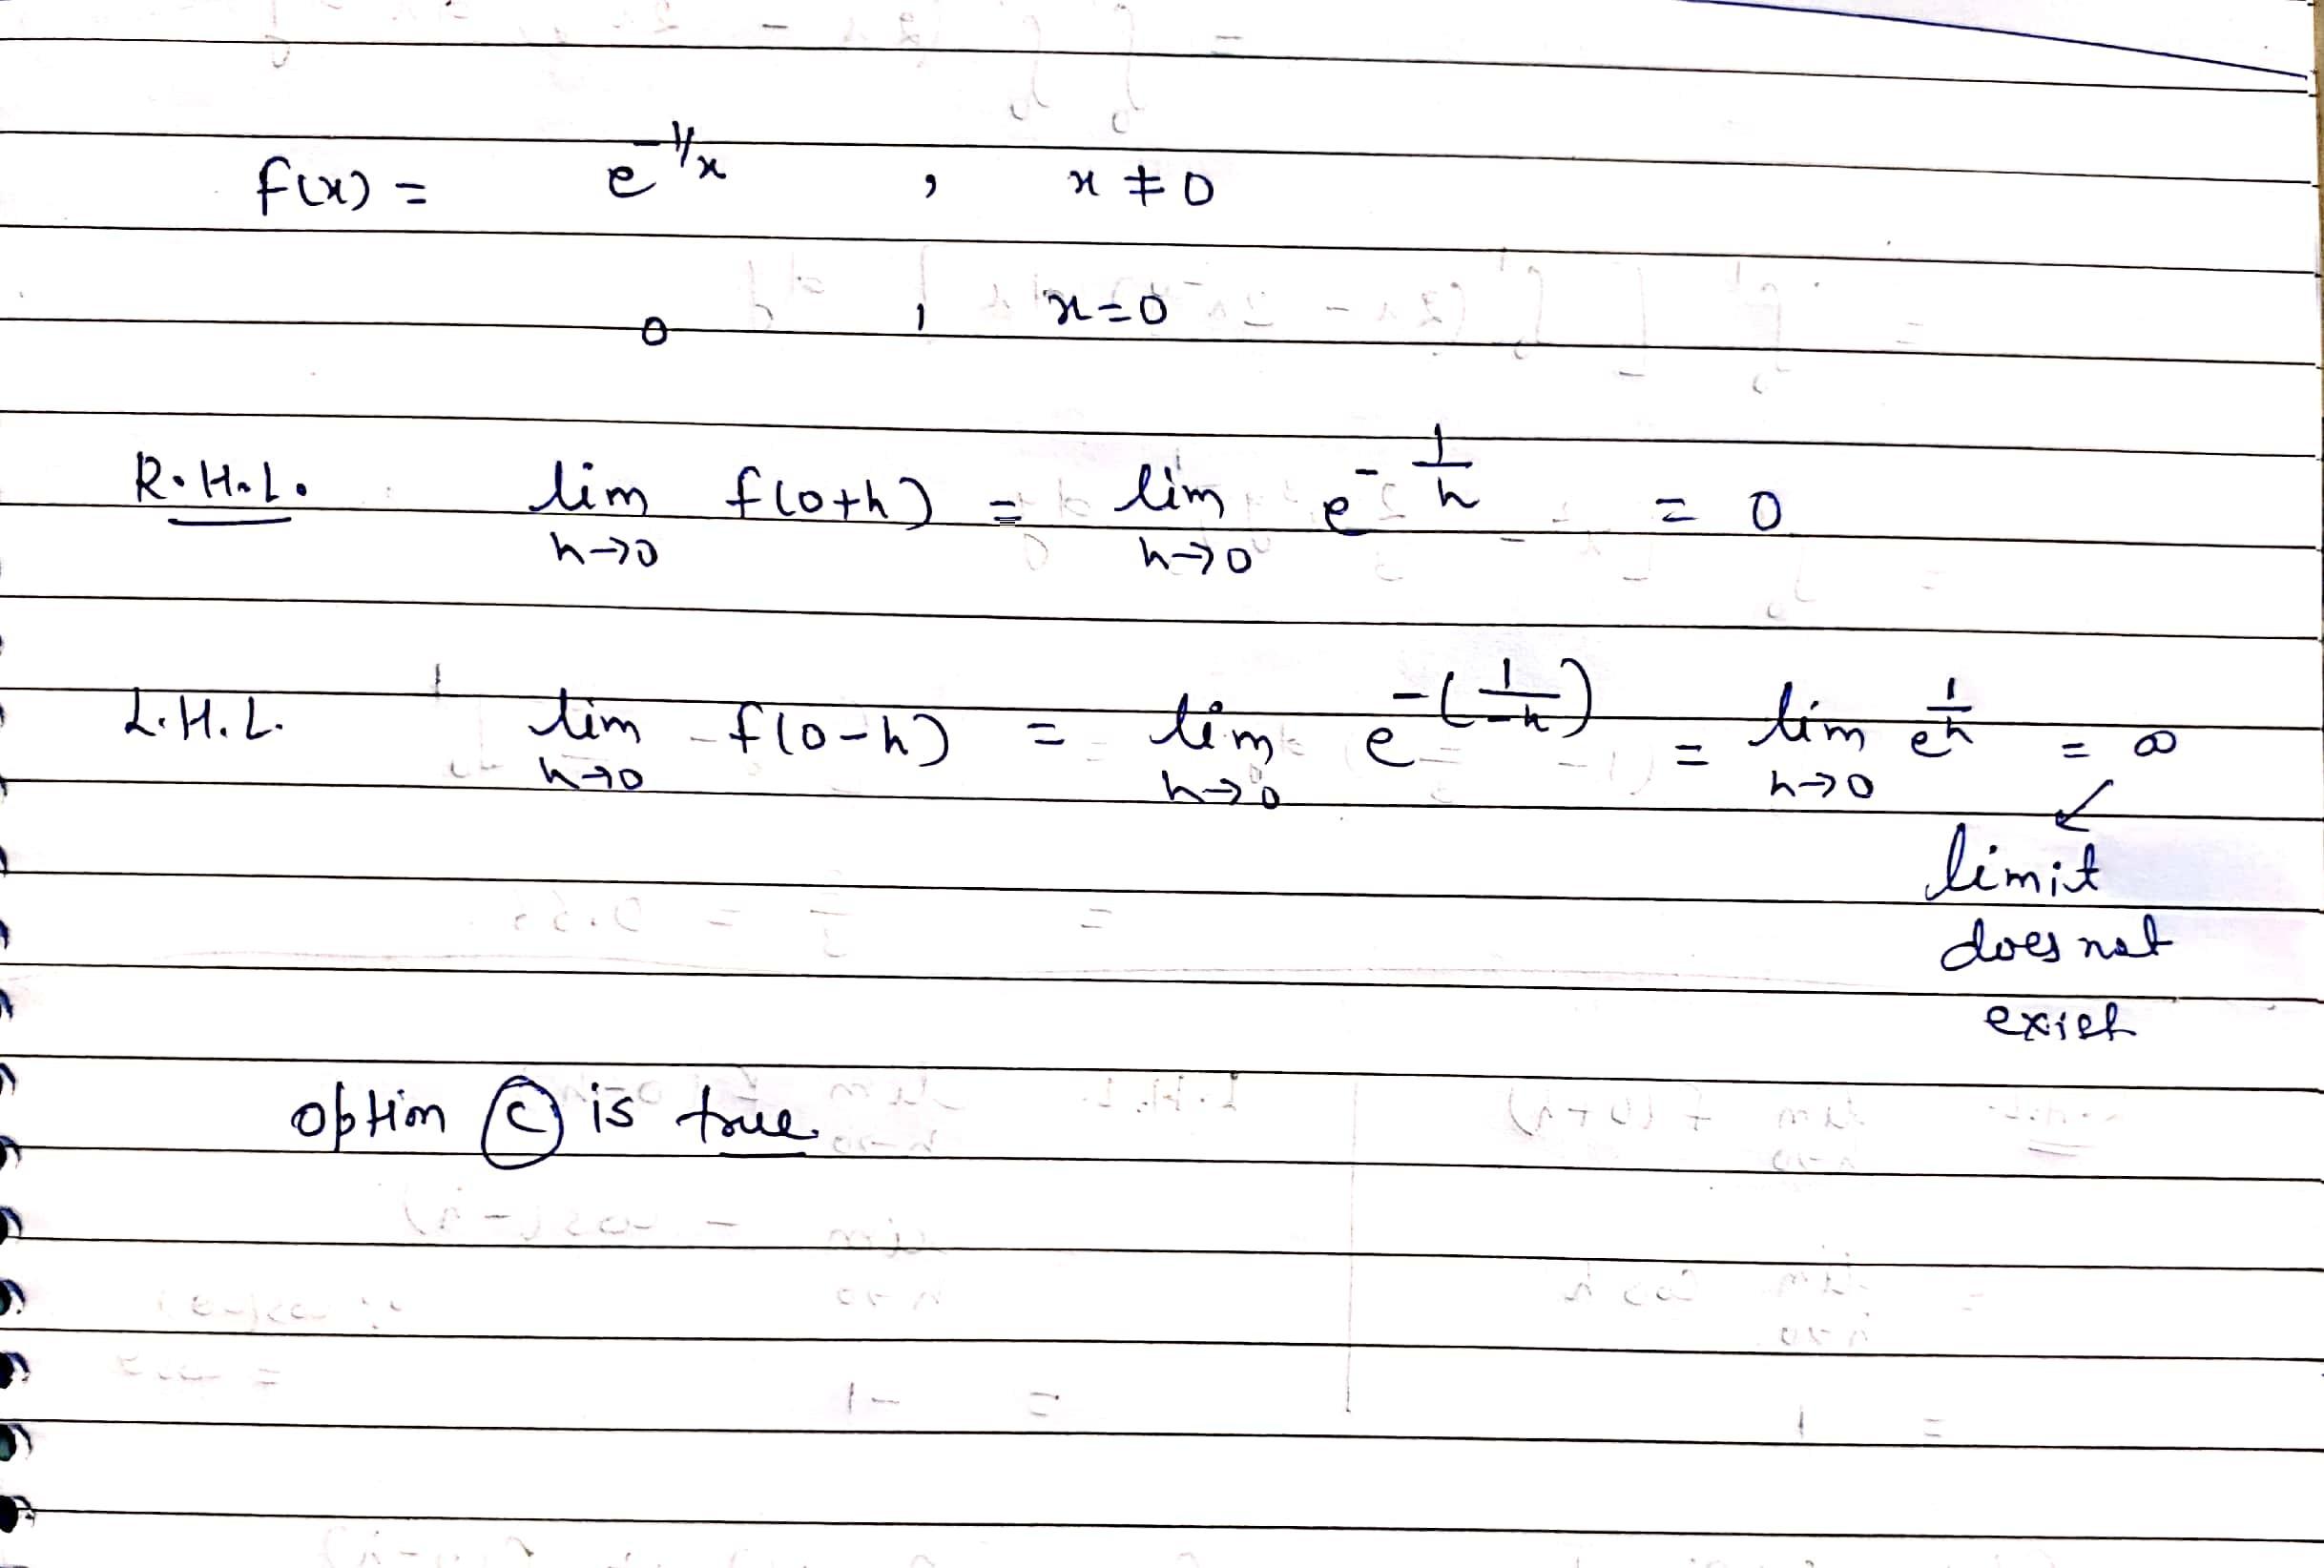 f(x) = e^{-1/x} , x ≠ 0
0 , x=0
R.H.L. lim_{h→0} f(0+h) = lim_{h→0} e^{-\frac{1}{h}} = 0
L.H.L. lim_{h→0} f(0-h) = lim_{h→0} e^{-(\frac{1}{-h})} = lim_{h→0} e^{\frac{1}{h}} = ∞
limit
does not
exist
option (C) is true.